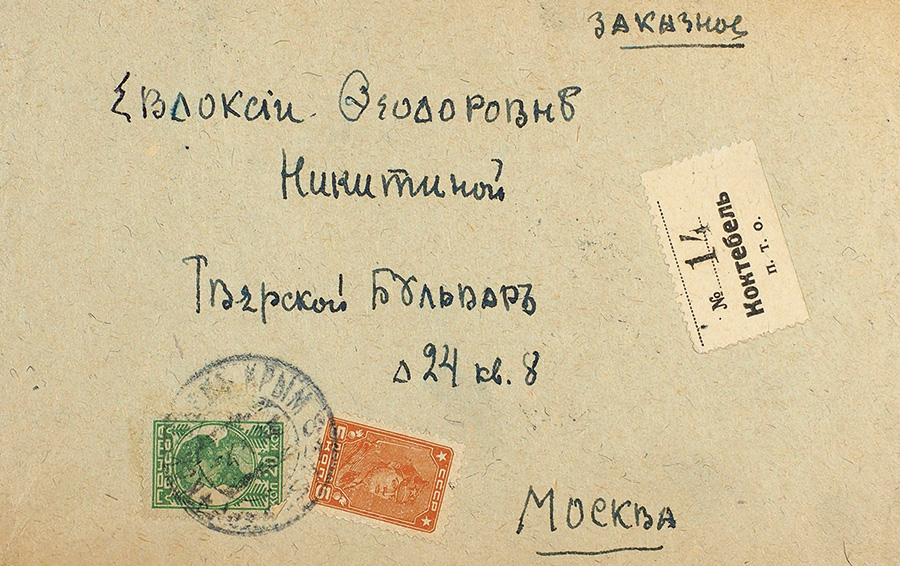 заказное
Евдоксіи Ѳеодоровнѣ
Никитиной
Тверской Бульваръ
д 24 кв. 8
Москва
№ 14
Коктебель
П. Т. О.
КРЫМ
20 КОП
СССР
5 КОП 5